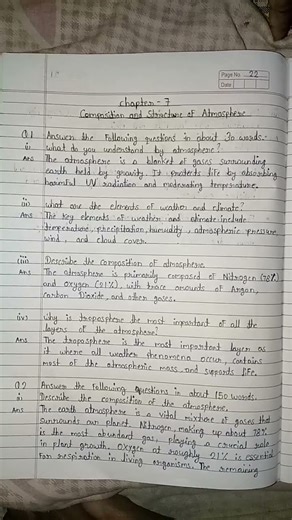 Page No. 22
Date
Chapter - 7
Composition and Structure of Atmosphere
Q.1 Answer the following questions in about 30 words.
i) what do you understand by atmosphere?
Ans The atmosphere is a blanket of gases surrounding
earth held by gravity. It protects life by absorbing
harmful UV radiation and moderating temperature.
ii) what are the elements of weather and climate?
Ans The key elements of weather and climate include
temperature, precipitation, humidity, atmospheric pressure
wind, and cloud cover.
iii) Describe the composition of atmosphere.
Ans The atmosphere is primarily composed of Nitrogen (78%)
and oxygen (21%), with trace amounts of Argon,
Carbon Dioxide, and other gases.
iv) Why is troposphere the most important of all the
layers of the atmosphere?
Ans The troposphere is the most important layer as
it where all weather phenomena occur, contains
most of the atmospheric mass and supports life.
Q.2 Answer the following questions in about 150 words.
i Describe the composition of the atmosphere.
Ans The earth atmosphere is a vital mixture of gases that
surrounds our planet. Nitrogen, making up about 78%
is the most abundant gas, playing a crucial role
in plant growth. Oxygen at roughly 21% is essential
for respiration in living organisms. The remaining